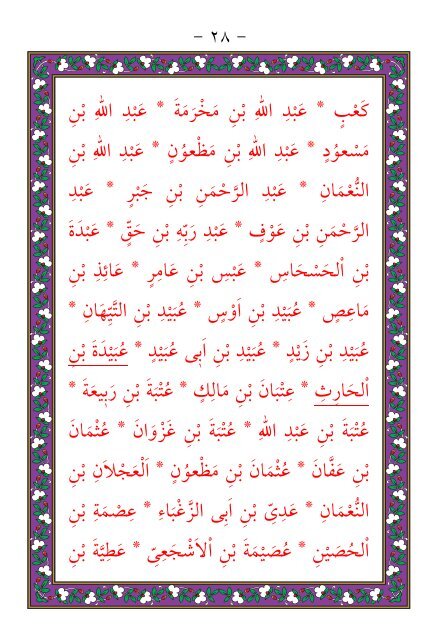 - ٢٨ -
كَعْبٍ * عَبْدِ اللهِ بْنِ مَخْرَمَةَ * عَبْدِ اللهِ بْنِ
مَسْعوُدٍ * عَبْدِ اللهِ بْنِ مَظْعوُنٍ * عَبْدِ اللهِ بْنِ
النُّعْمَانِ * عَبْدِ الرَّحْمَنِ بْنِ جَبْرٍ * عَبْدِ
الرَّحْمَنِ بْنِ عَوْفٍ * عَبْدِ رَبِّهِ بْنِ حَقٍّ * عَبْدَةَ
بْنِ اْلحَسْحَاسِ * عَبْسِ بْنِ عَامِرٍ * عَائِذِ بْنِ
مَاعِصٍ * عُبَيْدِ بْنِ اَوْسٍ * عُبَيْدِ بْنِ التَّيِّهَانِ *
عُبَيْدِ بْنِ زَيْدٍ * عُبَيْدِ بْنِ اَبِى عُبَيْدٍ * عُبَيْدَةَ بْنِ
اْلحَارِثِ * عِتْبَانَ بْنِ مَالِكٍ * عُتْبَةَ بْنِ رَبِيعَةَ *
عُتْبَةَ بْنِ عَبْدِ اللهِ * عُتْبَةَ بْنِ غَزْوَانَ * عُثْمَانَ
بْنِ عَفَّانَ * عُثْمَانَ بْنِ مَظْعوُنٍ * اَلْعَجْلاَنِ بْنِ
النُّعْمَانِ * عَدِىِّ بْنِ اَبى الزَّغْبَاءِ * عِصْمَةِ بْنِ
اْلحُصَيْنِ * عُصَيْمَةَ بْنِ اْلاَشْجَعِىِّ * عَطِيَّةَ بْنِ